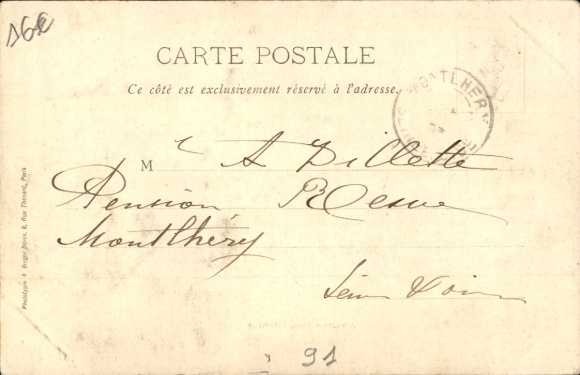 16€
CARTE POSTALE
Ce côté est exclusivement réservé à l'adresse.
MONTLHERY
M r A Dillette
Pension
Montlhéry
Seine & Oise
Phototypie A. Breger frères, 9, Rue Thénard, Paris
91